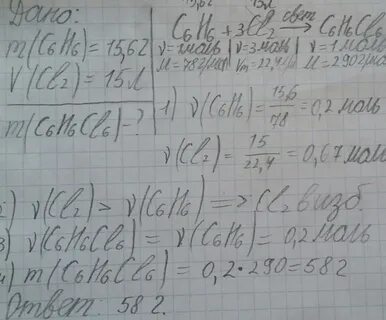 Дано:
m(C6H6)=15,6г
V(Cl2)=15л
m(C6H6Cl6)-?
15,6г 15л
C6H6+3Cl2 свет→ C6H6Cl6
ν=1моль ν=3моль ν=1моль
M=78г/моль Vm=22,4л/ M=290г/мол
1) ν(C6H6)=15,6/78=0,2моль
ν(Cl2)=15/22,4=0,67мол
2) ν(Cl2)>ν(C6H6)=>Cl2 в изб.
3) ν(C6H6Cl6)=ν(C6H6)=0,2моль
4) m(C6H6Cl6)=0,2•290=58г
Ответ: 58г.